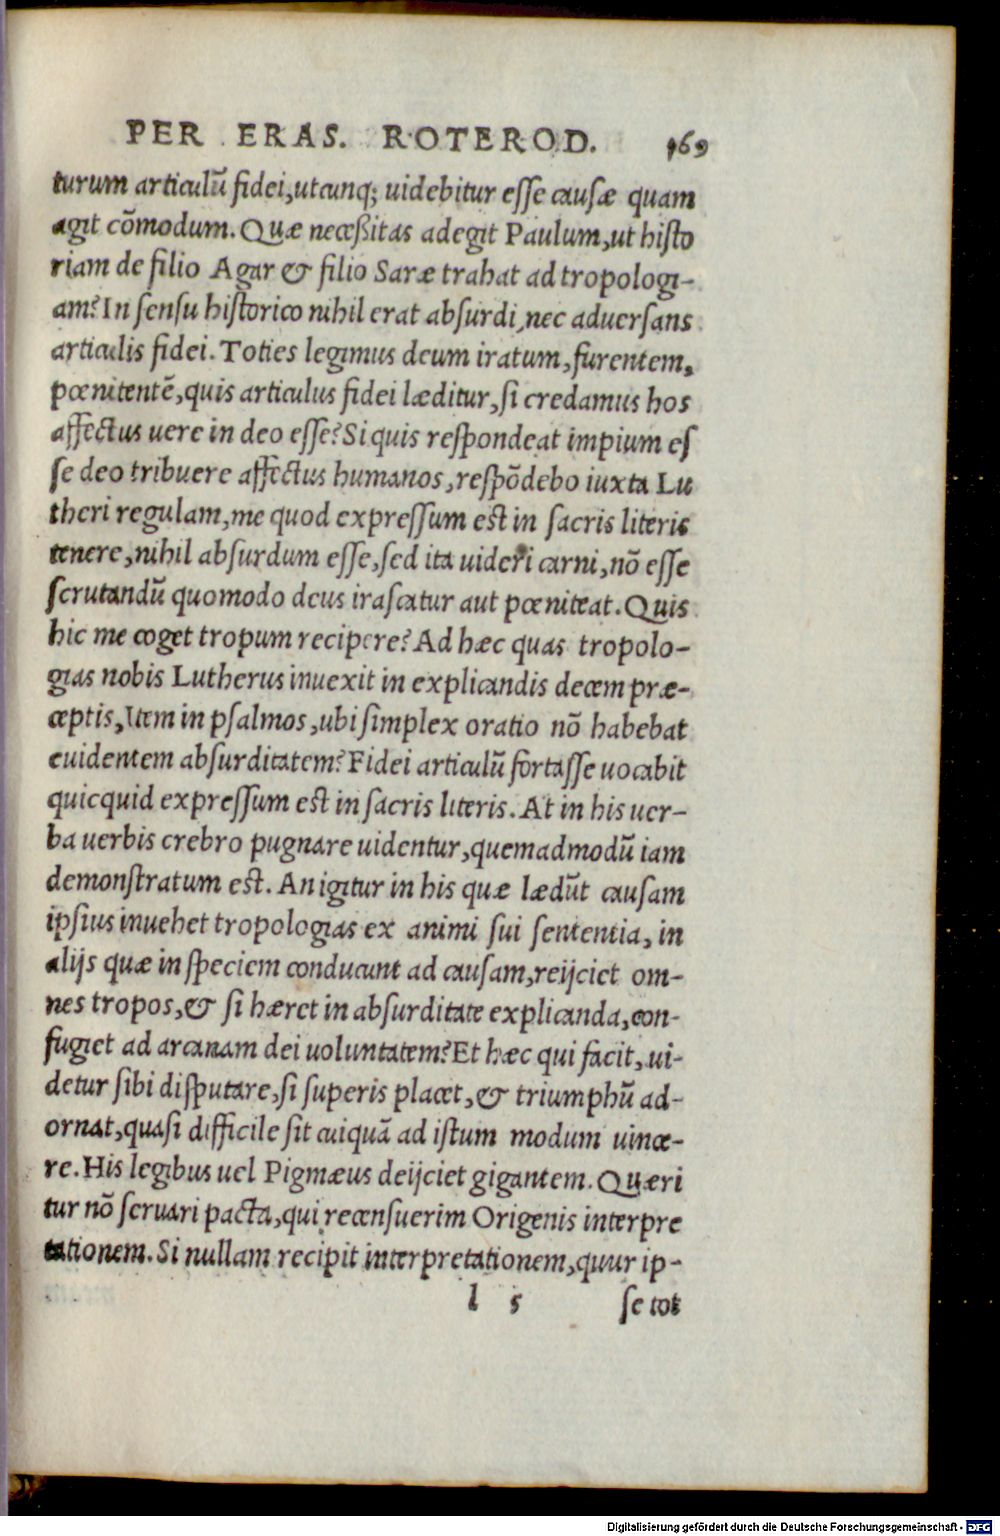 PER ERAS. ROTEROD. 169
turum articulũ fidei,utcunq; uidebitur esse causæ quam
agit cõmodum. Quæ necessitas adegit Paulum,ut histo
riam de filio Agar & filio Saræ trahat ad tropologi-
am? In sensu historico nihil erat absurdi,nec aduersans
articulis fidei. Toties legimus deum iratum,furentem,
pœnitentẽ,quis articulus fidei læditur,si credamus hos
affectus uere in deo esse? Si quis respondeat impium es
se deo tribuere affectus humanos,respõdebo iuxta Lu
theri regulam,me quod expressum est in sacris literis
tenere,nihil absurdum esse,sed ita uideri carni,nõ esse
scrutandũ quomodo deus irascatur aut pœniteat. Quis
hic me coget tropum recipere? Ad hæc quas tropolo-
gias nobis Lutherus inuexit in explicandis decem præ-
ceptis,Item in psalmos,ubi simplex oratio nõ habebat
euidentem absurditatem? Fidei articulũ fortasse uocabit
quicquid expressum est in sacris literis. At in his uer-
ba uerbis crebro pugnare uidentur,quemadmodũ iam
demonstratum est. An igitur in his quæ lædũt causam
ipsius inuehet tropologias ex animi sui sententia, in
alijs quæ in speciem conducunt ad causam,reijciet om-
nes tropos,& si hæret in absurditate explicanda,con-
fugiet ad arcanam dei uoluntatem? Et hæc qui facit,ui-
detur sibi disputare,si superis placet,& triumphũ ad-
ornat,quasi difficile sit cuiquã ad istum modum uince-
re. His legibus uel Pigmæus deijciet gigantem. Quæri
tur nõ seruari pacta,qui recensuerim Origenis interpre
tationem. Si nullam recipit interpretationem,quur ip-
l 5 se tot
Digitalisierung gefördert durch die Deutsche Forschungsgemeinschaft - DFG